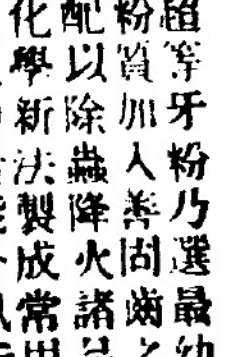 超等牙粉乃選最幼
粉質加入善固齒之
配以除蟲降火諸
化學新法製成常用